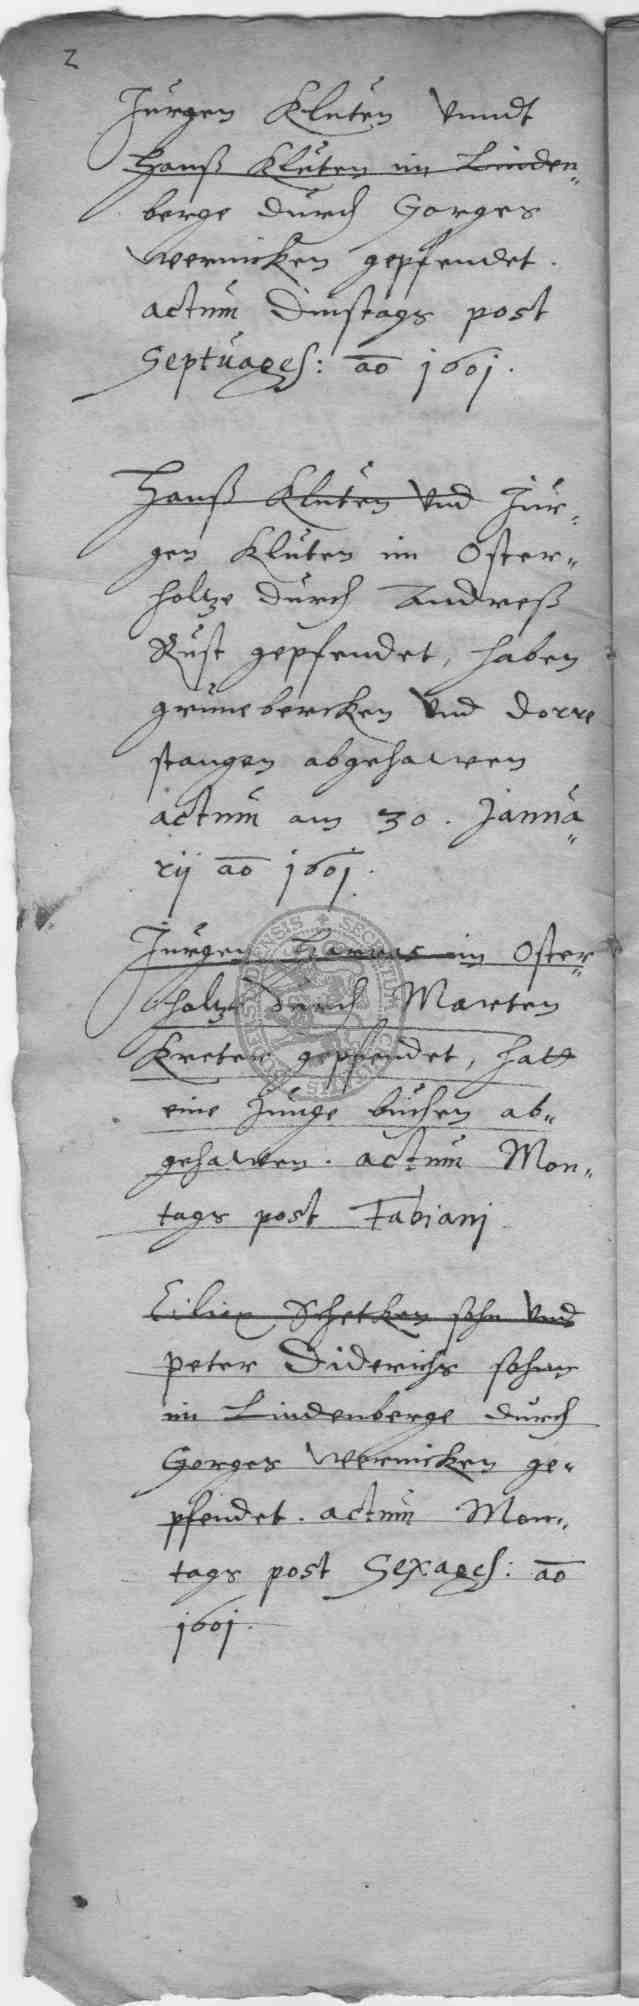 2
Jürgen Kluten Vnndt
Hanß Kluten im Linden-
berge durch Gorges
Wernicken gepfendet.
actum Dinstags post
Septuages: ao 1601.
Hanß Kluten Vnd Jür-
gen Kluten im Oster-
holtze durch Andreß
Rust gepfendet, haben
grüne bercken Vnd dorre
stangen abgehawen
actum am 30. Janua-
rij ao 1601.
Jürgen im Oster-
holtz durch Marten
Kreter gepfendet, hatt
eine Junge büchen ab-
gehawen. actum Mon-
tags post Fabianj
Schetken sohn Vnd
Peter Diderichs sohn
im Lindenberge durch
Gorges Wernicken ge-
pfendet. actum Mon-
tags post Sexages: ao
1601.